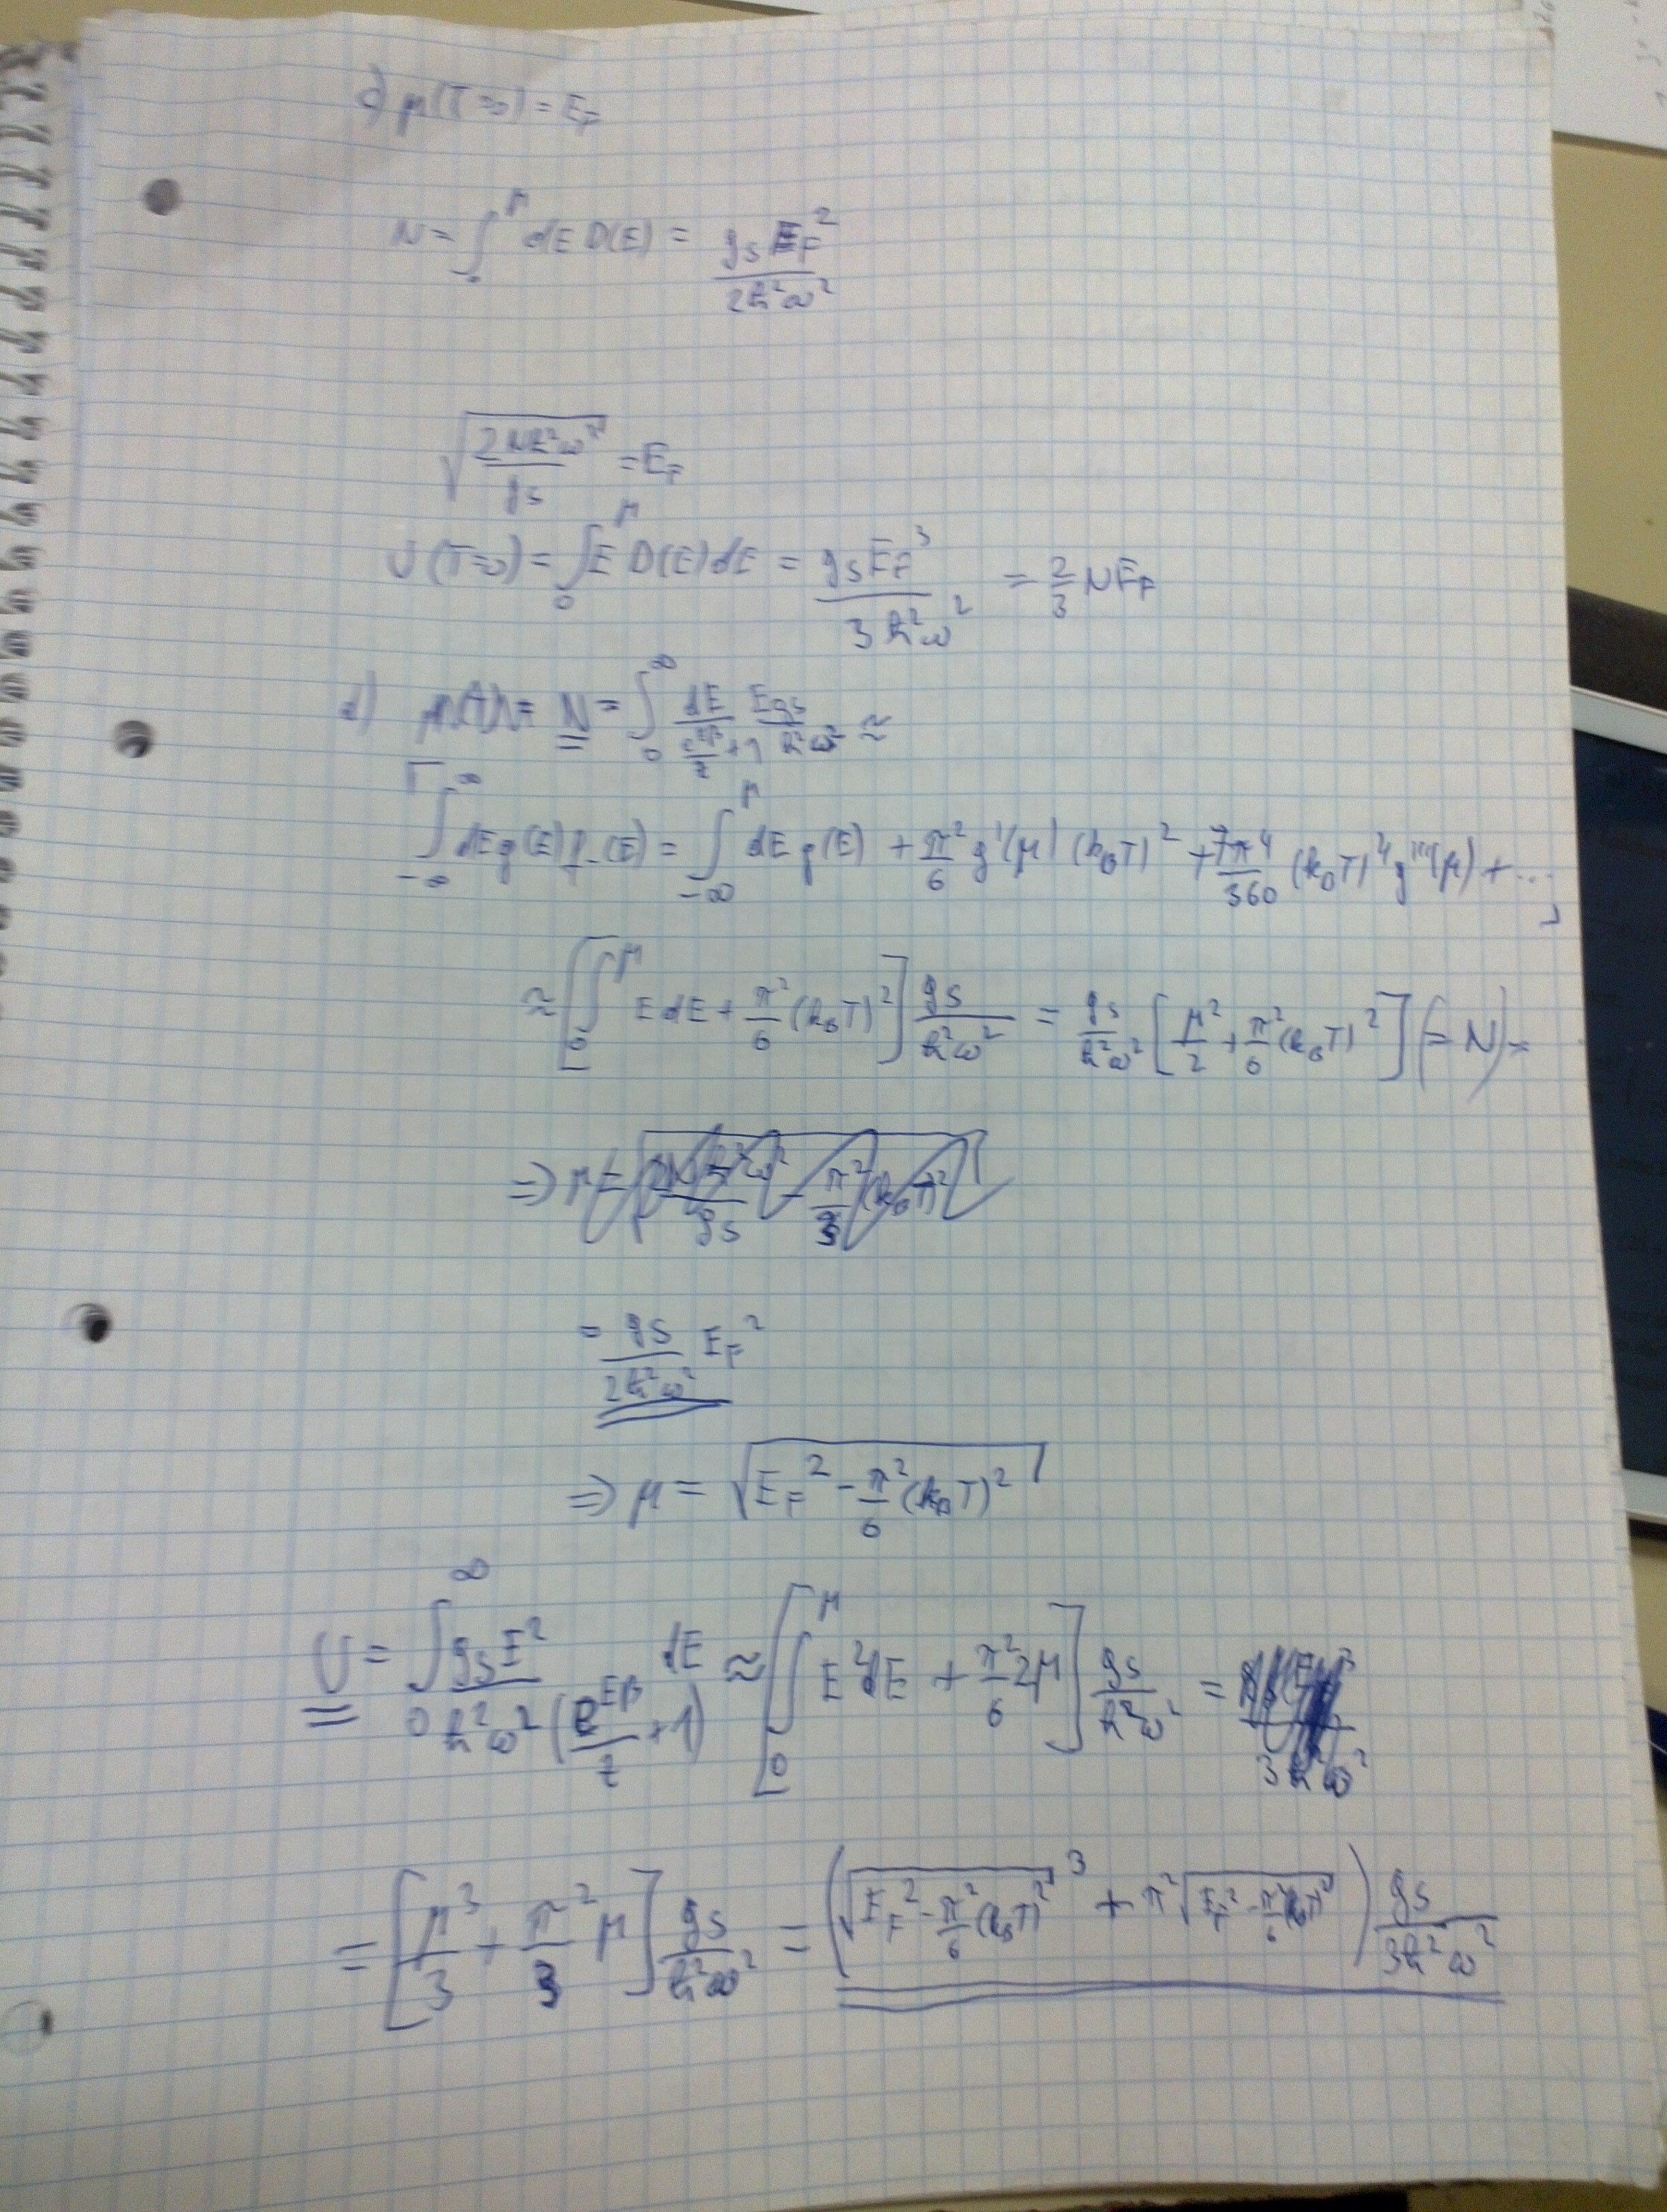 c) μ(T=0) = E_F
N = ∫_0^μ dE D(E) = g_s E_F^2 / 2ħ^2ω^2
√(2Nħ^2ω^2 / g_s) = E_F
U(T=0) = ∫_0^μ E D(E) dE = g_s E_F^3 / 3ħ^2ω^2 = 2/3 N E_F
d) N = ∫_0^∞ dE / (e^{Eβ}/z + 1) E g_s / ħ^2ω^2 ≈
∫_{-∞}^∞ dE g(E) f_-(E) = ∫_{-∞}^μ dE g(E) + π^2/6 g'(μ) (k_B T)^2 + 7π^4/360 (k_B T)^4 g'''(μ) + ...
≈ [∫_0^μ E dE + π^2/6 (k_B T)^2] g_s / ħ^2ω^2 = g_s / ħ^2ω^2 [μ^2/2 + π^2/6 (k_B T)^2] (= N) =
⇒ μ = √(2Nħ^2ω^2 / g_s - π^2/3 (k_B T)^2)
= g_s / 2ħ^2ω^2 E_F^2
⇒ μ = √(E_F^2 - π^2/6 (k_B T)^2)
U = ∫_0^∞ g_s E^2 / ħ^2ω^2 (e^{Eβ}/z + 1) dE ≈ [∫_0^μ E^2 dE + π^2/6 2μ] g_s / ħ^2ω^2 = 3ħ^2ω^2
= [μ^3/3 + π^2/3 μ] g_s / ħ^2ω^2 = (√(E_F^2 - π^2/6 (k_B T)^2)^3 + π^2 √(E_F^2 - π^2/6 (k_B T)^2)) g_s / 3ħ^2ω^2